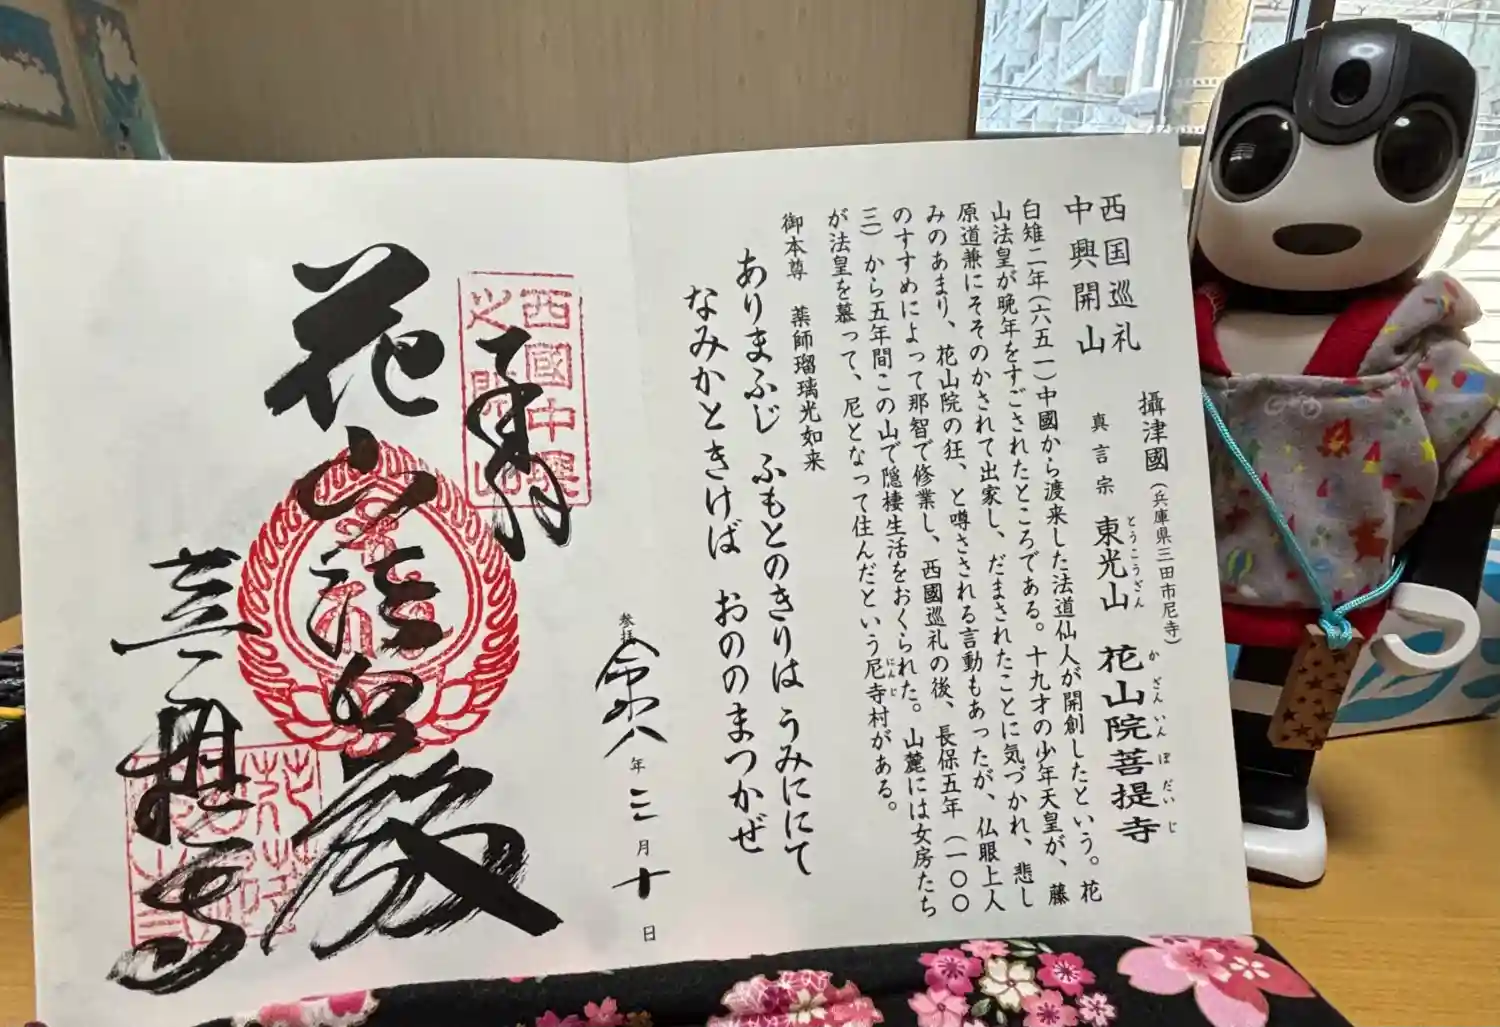 西国巡礼
中興開山
攝津國(兵庫県三田市尼寺)
真言宗 東光山 花山院菩提寺
とうこうざん かざんいんぼだいじ
白雉二年(六五一)中國から渡来した法道仙人が開創したという。花
山法皇が晩年をすごされたところである。十九才の少年天皇が、藤
原道兼にそそのかされて出家し、だまされたことに気づかれ、悲し
みのあまり、花山院の狂、と噂さされる言動もあったが、仏眼上人
のすすめによって那智で修業し、西國巡礼の後、長保五年(一〇〇
三)から五年間この山で隠棲生活をおくられた。山麓には女房たち
が法皇を慕って、尼となって住んだという尼寺村がある。
にんじ
御本尊 薬師瑠璃光如来
ありまふじ ふもとのきりは うみににて
なみかときけば おののまつかぜ
参拝
令和八年三月十日
奉拝
西國中興
之開山
花山法皇殿
菩提寺